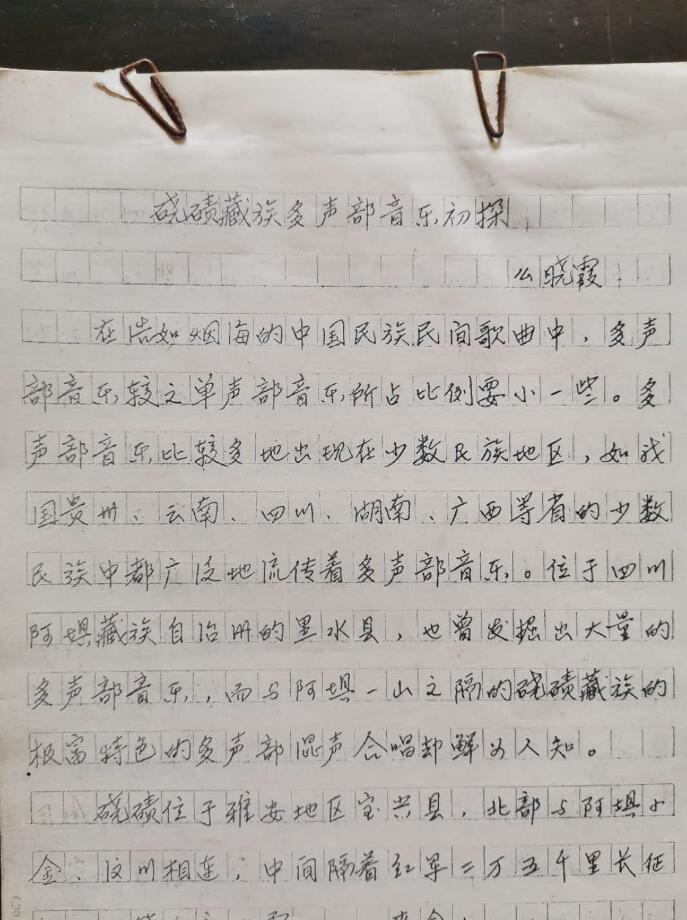 硗碛藏族多声部音乐初探
么晓霞
在浩如烟海的中国民族民间歌曲中，多声
部音乐较之单声部音乐所占比例要小一些。多
声部音乐比较多地出现在少数民族地区，如我
国贵州、云南、四川、湖南、广西等省的少数
民族中都广泛地流传着多声部音乐。位于四川
阿坝藏族自治州的黑水县，也曾发掘出大量的
多声部音乐，而与阿坝一山之隔的硗碛藏族的
极富特色的多声部混声合唱却鲜为人知。
硗碛位于雅安地区宝兴县，北部与阿坝小
金、汶川相连，中间隔着红军二万五千里长征